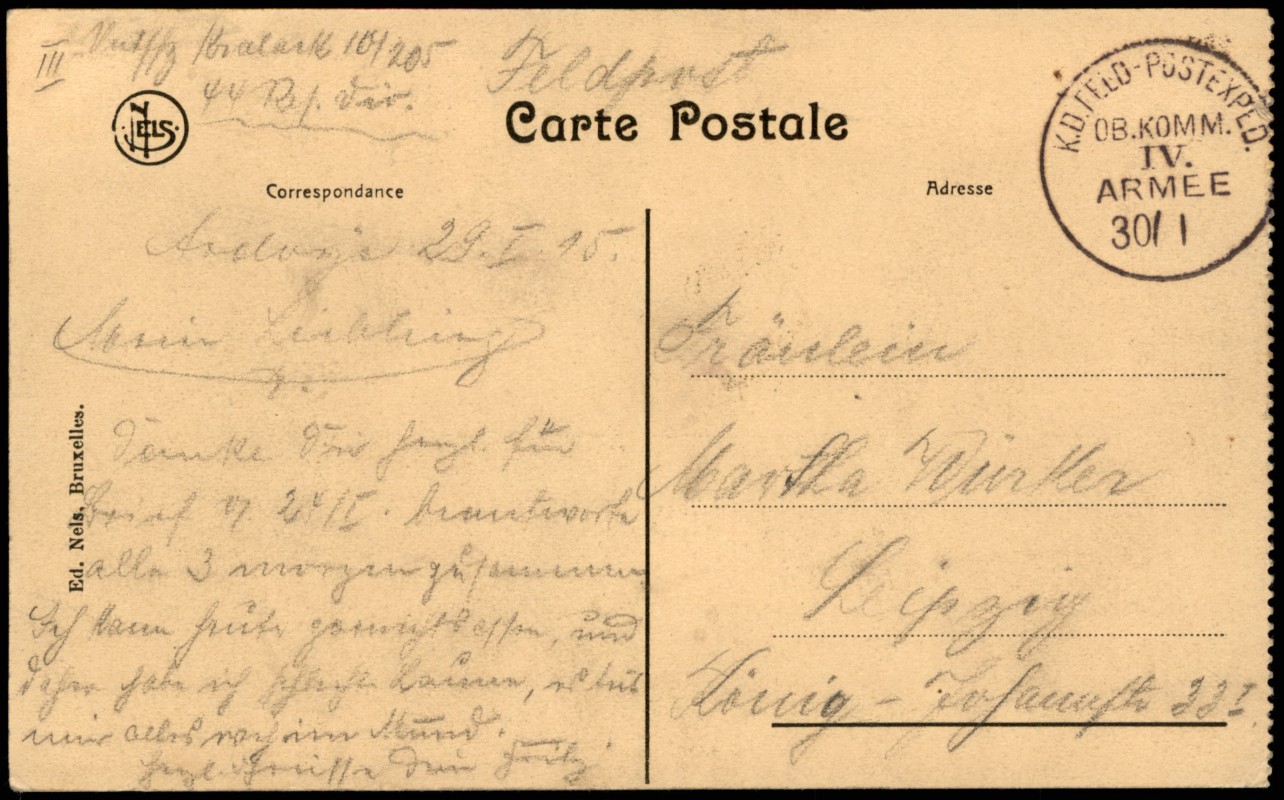 III
10/205
44 Res. Div.
Feldpost
NELS
Carte Postale
K.D. FELD-POSTEXPED.
OB.KOMM.
IV.
ARMEE
30/ 1
Correspondance
Adresse
29. I. 15.
Mein Liebling
Danke Dir herzl. für
Brief v 24/I. beantworte
alle 3 morgen zusammen
Ich kann heute garnichts essen, und
daher habe ich schlechte Laune, es tut
mir alles weh im Mund.
Herzl. Grüsse Dein Fritz
Ed. Nels, Bruxelles.
Fräulein
Martha Würker
Leipzig
König-Johannstr 33 I